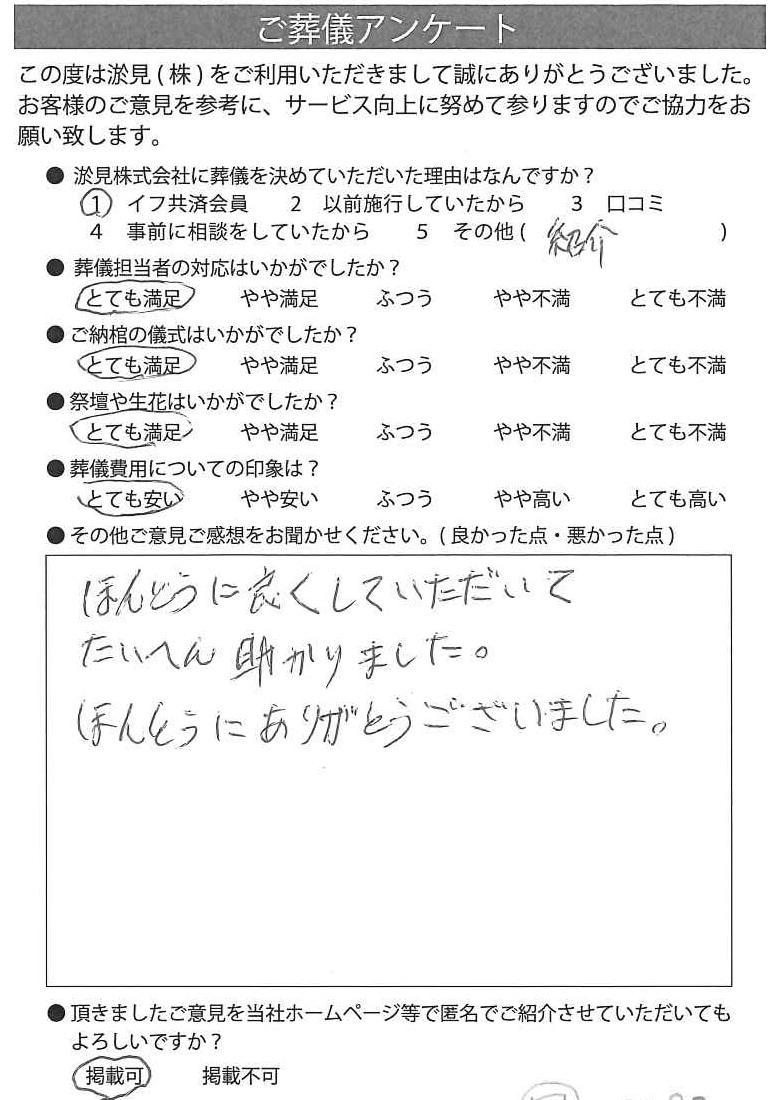 ご葬儀アンケート
この度は淤見(株)をご利用いただきまして誠にありがとうございました。
お客様のご意見を参考に、サービス向上に努めて参りますのでご協力をお
願い致します。
● 淤見株式会社に葬儀を決めていただいた理由はなんですか？
1 イフ共済会員 2 以前施行していたから 3 口コミ
4 事前に相談をしていたから 5 その他( 紹介 )
● 葬儀担当者の対応はいかがでしたか？
とても満足 やや満足 ふつう やや不満 とても不満
● ご納棺の儀式はいかがでしたか？
とても満足 やや満足 ふつう やや不満 とても不満
● 祭壇や生花はいかがでしたか？
とても満足 やや満足 ふつう やや不満 とても不満
● 葬儀費用についての印象は？
とても安い やや安い ふつう やや高い とても高い
● その他ご意見ご感想をお聞かせください。(良かった点・悪かった点)
ほんとうに良くしていただいて
たいへん助かりました。
ほんとうにありがとうございました。
● 頂きましたご意見を当社ホームページ等で匿名でご紹介させていただいても
よろしいですか？
掲載可 掲載不可